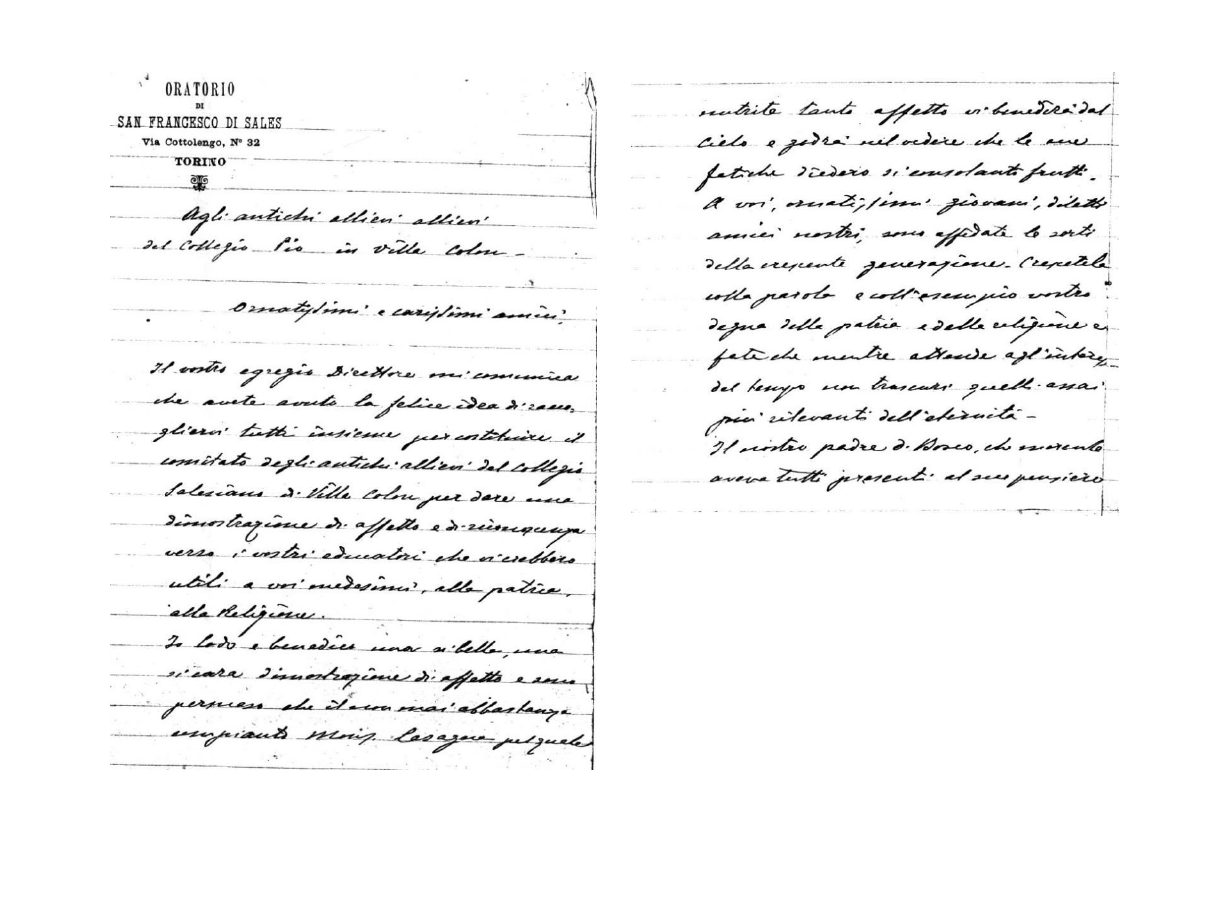 ORATORIO
DI
SAN FRANCESCO DI SALES
Via Cottolengo, Nº 32
TORINO
Agli antichi allievi allievi
del Collegio Pio in Villa Colon -
Ornatissimi e carissimi amici,
Il vostro egregio Direttore mi comunica
che avete avuto la felice idea di racco,
gliervi tutti insieme per costituire il
comitato degli antichi allievi del Collegio
Salesiano di Villa Colon per dare una
dimostrazione di affetto e di riconoscenza
verso i vostri educatori che vi crebbero
utili a voi medesimi, alla patria,
alla Religione.
Io lodo e benedico una sì bella, una
sì cara dimostrazione di affetto e sono
persuaso che il non mai abbastanza
compianto Mons. Lasagna pel quale
nutrite tanto affetto vi benedirà dal
Cielo e godrà nel vedere che le sue
fatiche diedero sì consolanti frutti.
A voi, ornatissimi giovani, diletti
amici nostri, sono affidate le sorti
della crescente generazione. Crescetela
colla parola e coll'esempio vostro
degna della patria e della religione e
fate che mentre attende agl'interessi
del tempo non trascuri quelli assai
più rilevanti dell'eternità -
Il nostro padre d. Bosco, che morente
aveva tutti presenti al suo pensiero